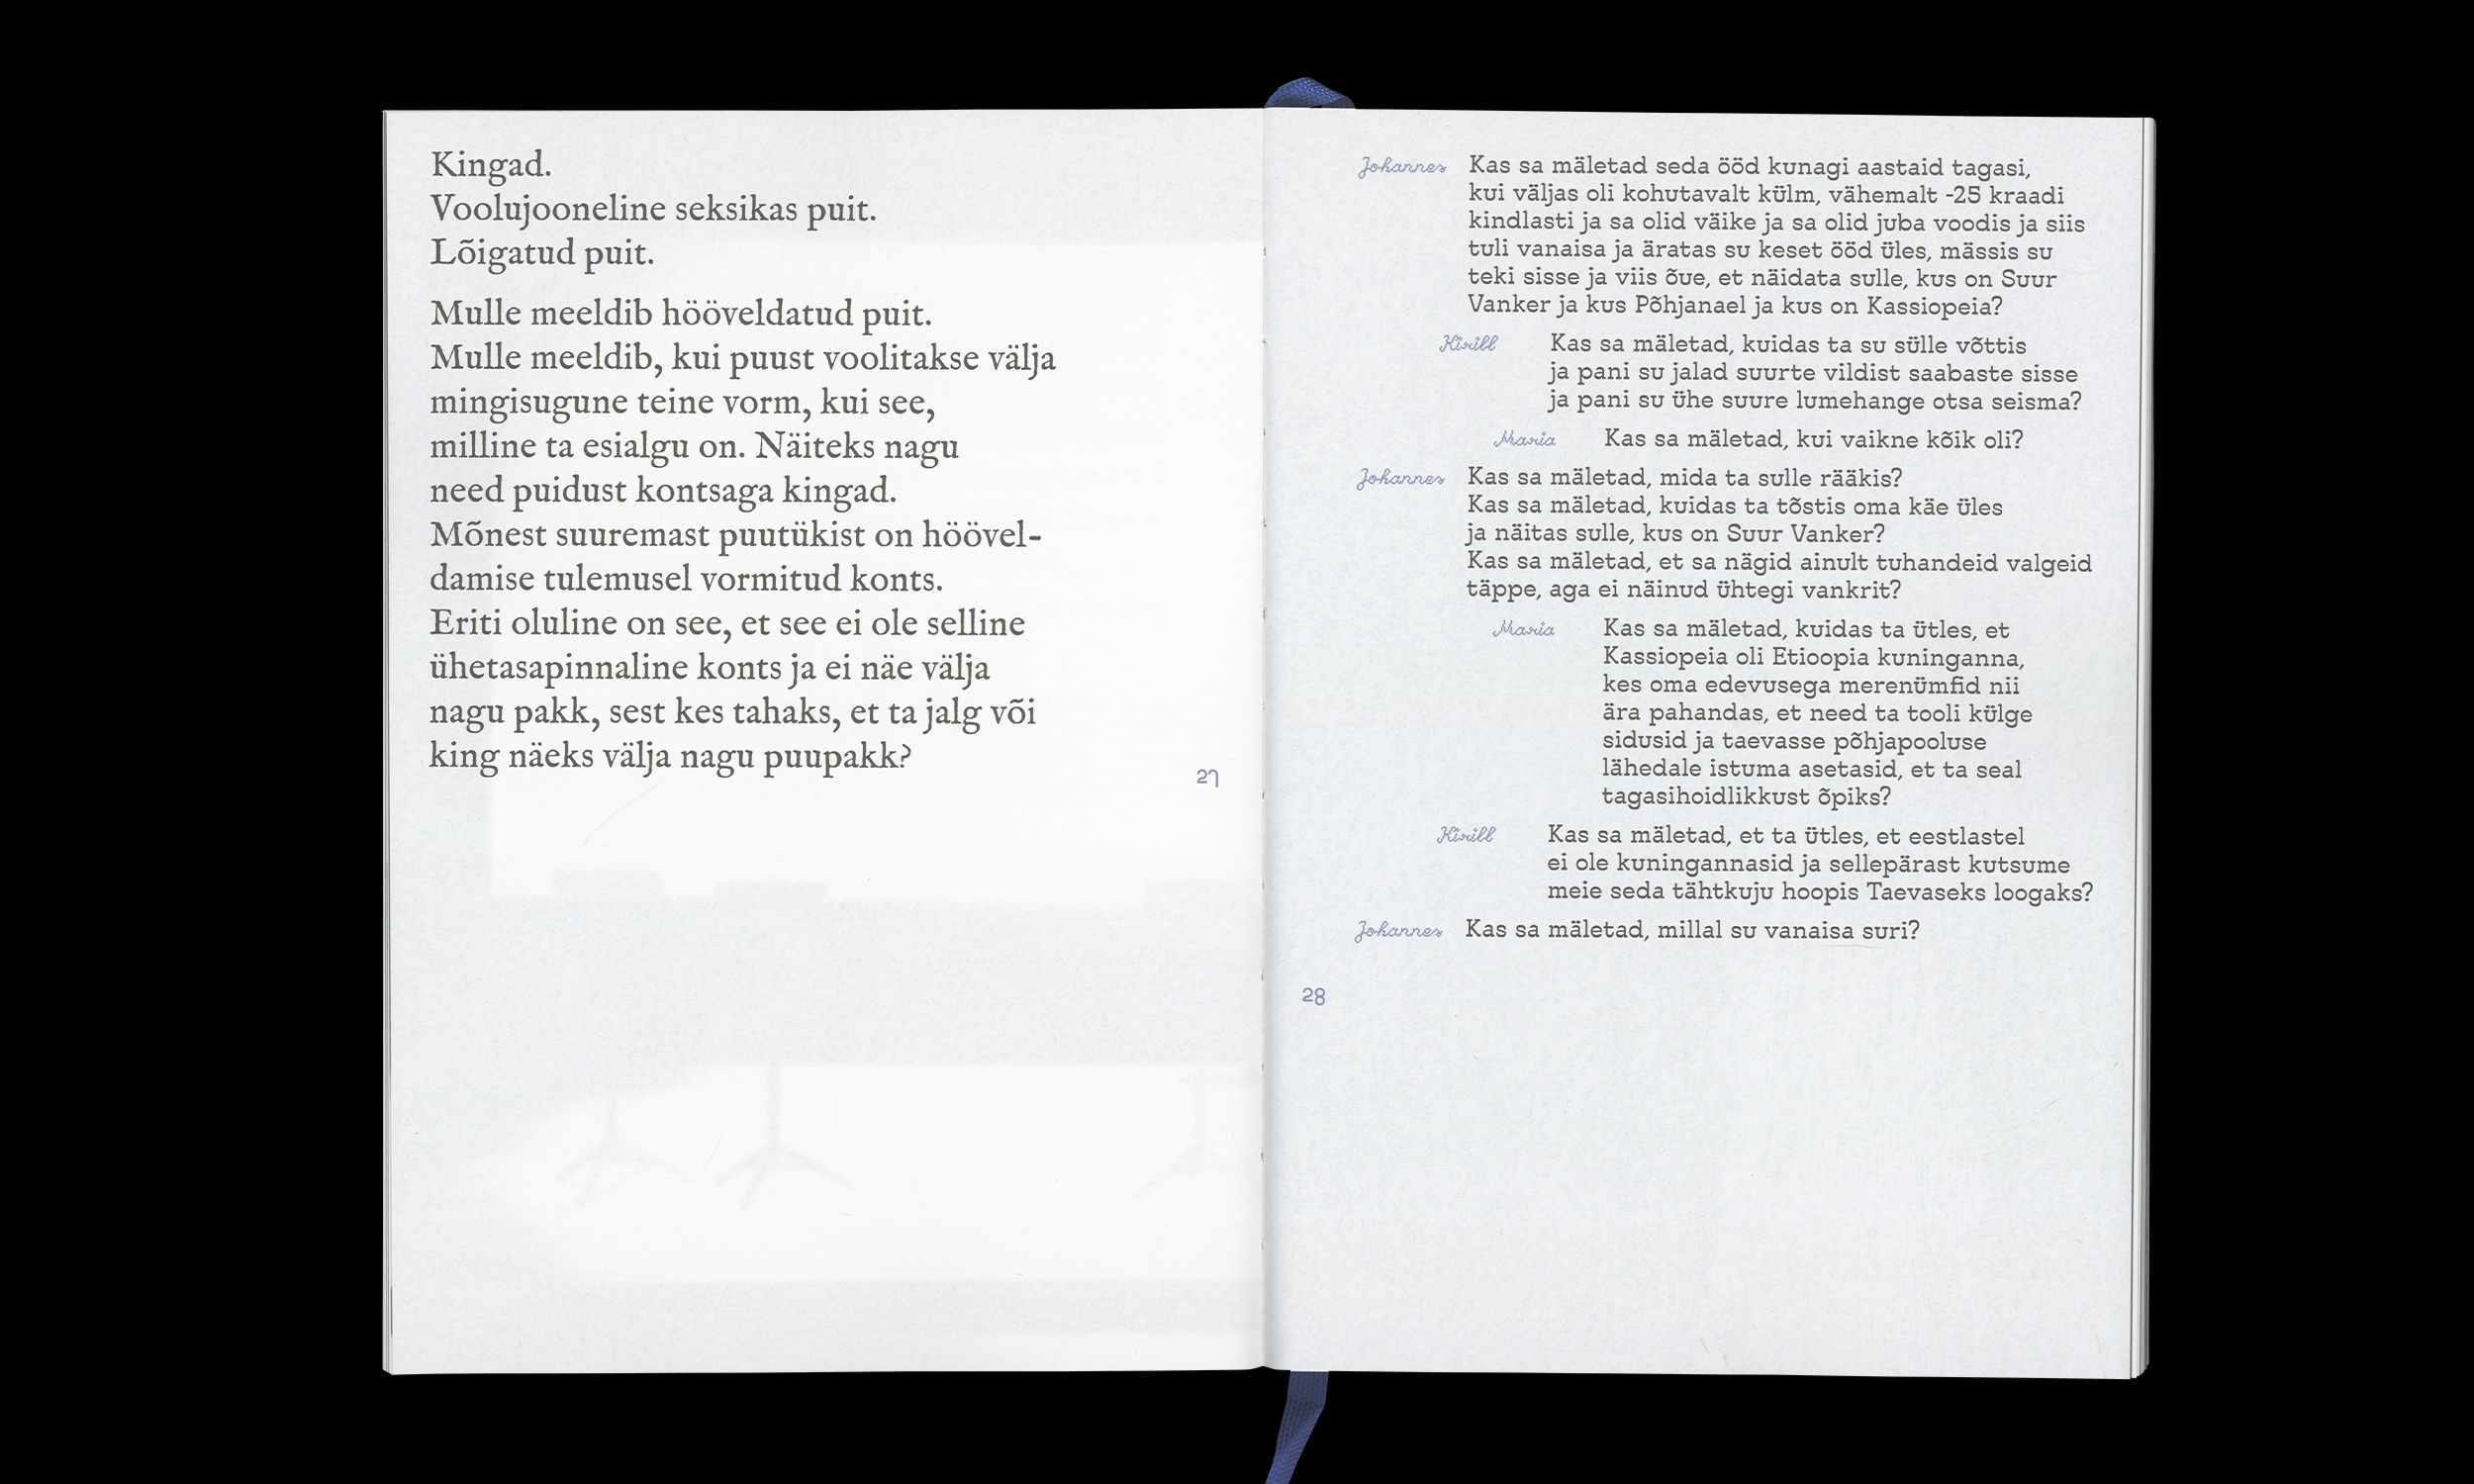 Kingad.
Voolujooneline seksikas puit.
Lõigatud puit.
Mulle meeldib hööveldatud puit.
Mulle meeldib, kui puust voolitakse välja
mingisugune teine vorm, kui see,
milline ta esialgu on. Näiteks nagu
need puidust kontsaga kingad.
Mõnest suuremast puutükist on höövel-
damise tulemusel vormitud konts.
Eriti oluline on see, et see ei ole selline
ühetasapinnaline konts ja ei näe välja
nagu pakk, sest kes tahaks, et ta jalg või
king näeks välja nagu puupakk?
27
Johannes Kas sa mäletad seda ööd kunagi aastaid tagasi,
kui väljas oli kohutavalt külm, vähemalt -25 kraadi
kindlasti ja sa olid väike ja sa olid juba voodis ja siis
tuli vanaisa ja äratas su keset ööd üles, mässis su
teki sisse ja viis õue, et näidata sulle, kus on Suur
Vanker ja kus Põhjanael ja kus on Kassiopeia?
Kirill Kas sa mäletad, kuidas ta su sülle võttis
ja pani su jalad suurte vildist saabaste sisse
ja pani su ühe suure lumehange otsa seisma?
Maria Kas sa mäletad, kui vaikne kõik oli?
Johannes Kas sa mäletad, mida ta sulle rääkis?
Kas sa mäletad, kuidas ta tõstis oma käe üles
ja näitas sulle, kus on Suur Vanker?
Kas sa mäletad, et sa nägid ainult tuhandeid valgeid
täppe, aga ei näinud ühtegi vankrit?
Maria Kas sa mäletad, kuidas ta ütles, et
Kassiopeia oli Etioopia kuninganna,
kes oma edevusega merenümfid nii
ära pahandas, et need ta tooli külge
sidusid ja taevasse põhjapooluse
lähedale istuma asetasid, et ta seal
tagasihoidlikkust õpiks?
Kirill Kas sa mäletad, et ta ütles, et eestlastel
ei ole kuningannasid ja sellepärast kutsume
meie seda tähtkuju hoopis Taevaseks loogaks?
Johannes Kas sa mäletad, millal su vanaisa suri?
28